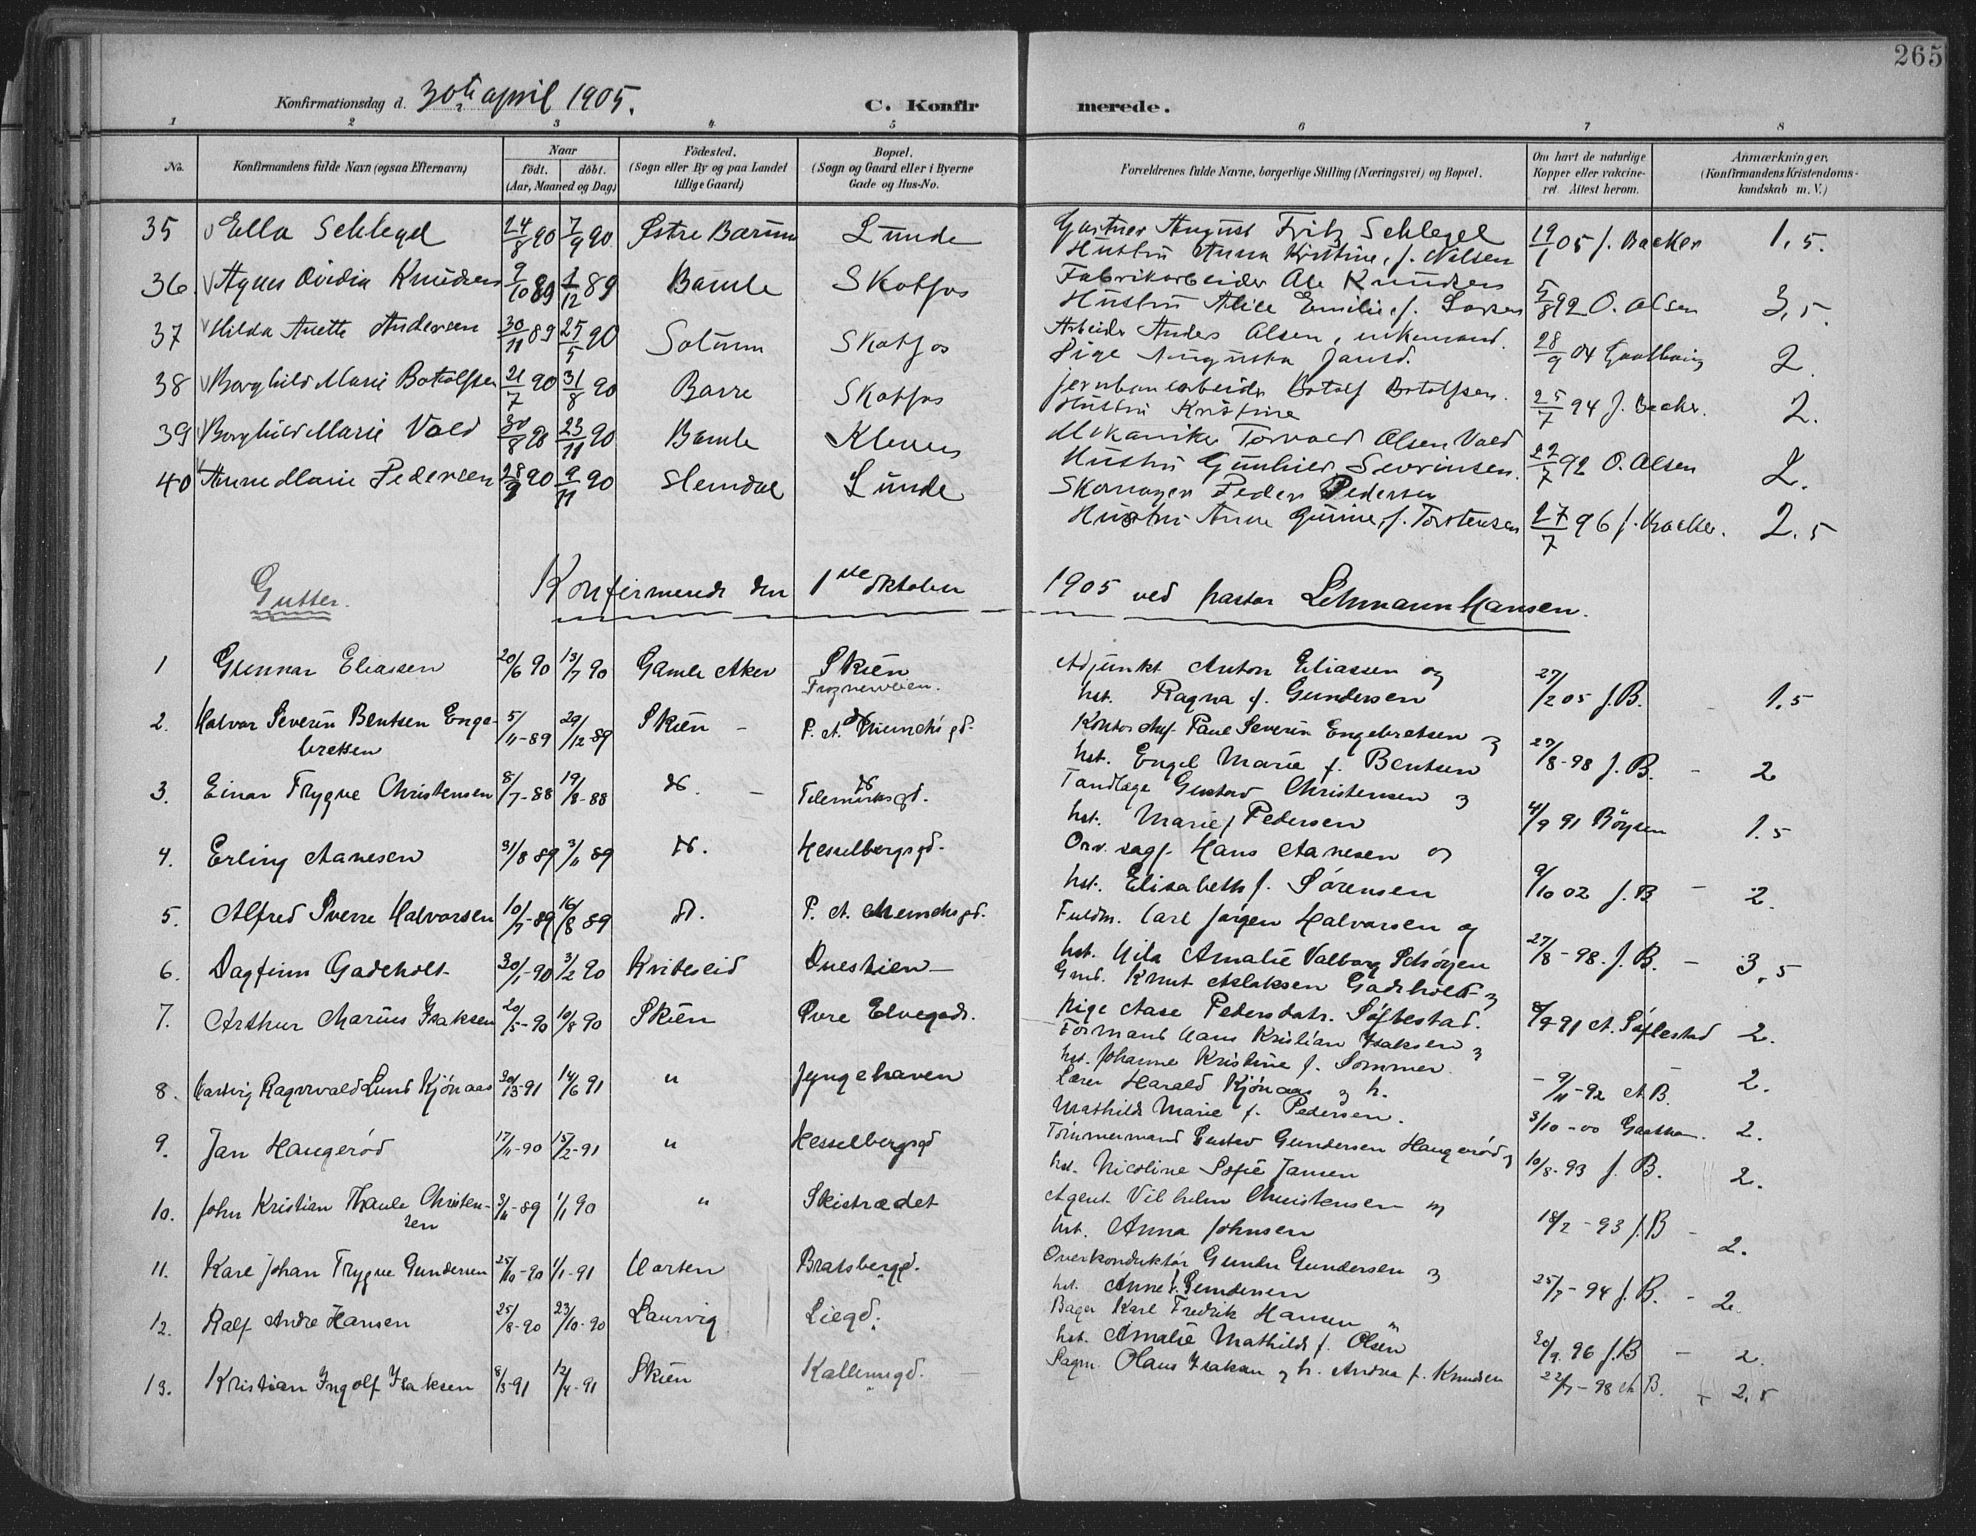 265
Konfirmationsdag d. 30te april 1905.
C. Konfirmerede.
1 2 3 4 5 6 7 8
No. Konfirmandens fulde Navn (ogsaa Efternavn) Naar födt. döbt. (Aar, Maaned og Dag) Födested. (Sogn eller By og paa Landet tillige Gaard) Bopæl. (Sogn og Gaard eller i Byerne Gade og Hus-No. Forældrenes fulde Navne, borgerlige Stilling (Næringsvei) og Bopæl. Om havt de naturlige Kopper eller vakcineret. Attest herom. Anmærkninger. (Konfirmandens Kristendomskundskab m. V.)
35 Ella Schlegel 24/8 90 7/9 90 Østre Bærum Lunde Gartner August Fritz Schlegel
Hustru Anna Kristine, f. Nilsen 19/1 05 J. Backer 1,5.
36. Agnes Ovidia Knudsen 9/10 89 1/12 89 Bamle Skotfos Fabrikarbeider Ole Knudsen
Hustru Alice Emilie f. Larsen 5/8 92 O. Olsen 3,5.
37 Hilda Anette Andersen 30/11 89 25/5 90 Solum Skotfos Arbeider Anders Olsen, enkemand.
Pige Augusta Jansd. 28/9 04 2.
38 Borghild Marie Botolfsen 21/7 90 31/8 90 Borre Skotfos jernbanearbeider Botolf Botolfsen.
Hustru Kristine 25/7 94 J. Backer. 2.
39 Borghild Marie Vold 30/8 90 23/11 90 Bamle Kleven Mekaniker Torvald Olsen Vold
Hustru Gunhild Sevrinsen. 22/7 92 O. Olsen 2.
40 Anne Marie Pedersen 28/9 90 9/11 90 Slemdal Lunde Skomager Peder Pedersen
Hustru Anne Gurine, f. Torstensen 27/7 96 J. Backer. 2.5
Gutter. Konfirmerede den 1ste Oktober 1905 ved pastor Lehmann Hansen.
1 Gunnar Eliassen 20/6 90 13/7 90 Gamle Aker Skien Frognerveien. Adjunkt Anton Eliassen og
hst. Ragna f. Gundersen 27/2 05 J.B. 1,5
2. Halvor Severin Bentsen Engebretsen 5/11-89 29/12-89 Skien - P. A. Munchs gd. Kontorchef Paul Severin Engebretsen og
hst. Engel Marie f. Bentsen 27/8-98 J.B. - 2
3. Einar Trygve Christensen 8/7-88 19/8-88 do. - do Telemarksgd. Tandlæge Gustav Christensen og
hst. Marie f Pedersen 4/9 91 Böysen 1.5
4. Erling Aanesen 31/8 89 3/11 89 do. Hesselbergsgd. Hans Aanesen og
hst. Elisabeth f. Sørensen 9/10 02 J.B - 2.
5. Alfred Sverre Halvorsen 10/7-89 16/8 89 do. P. A. Munchsgd. Fuldm. Carl Jørgen Halvorsen og
hst. Mila Amalie Valborg 27/8-98. J.B. - 3,5
6. Dagfinn Gadeholt 30/1-90 3/2 90 Kviteseid Duestien - Gmb. Knut Aslaksen Gadeholt og
pige Aase Pedersdatr. Søftestad. 8/9 91 A. Søftestad 2.
7. Arthur Marius Isaksen 20/5-90 10/8 90 Skien Øvre Elvegade. Formand Hans Kristian Isaksen og
hst. Johanne Kristine f. Sommer - 9/11-92 A.B. 2.
8. Hartvig Ragnvald Lund Kjönaas 30/3-91 14/6 91 " Jyngehaven Lærer Harald Kjönaas og h.
Mathilde Marie f. Pedersen. 3/10-00 2.
9. Jan Haugerød 17/11-90 15/2-91 " Hesselbergsgd Tømmermand Gustav Gundersen Haugerød og
hst. Nicoline Sofie Jansen 10/8-93 J.B. 2.
10. John Kristian Thaule Christensen 3/11-89 1/1 90 " Skistrædet Agent Vilhelm Christensen og
hst. Anna Johnsen 18/2-93 J.B - 2.
11. Karl Johan Trygve Gundersen 25/10-90 1/1-91 Horten Bratsbergd. Overkonduktør Gunder Gundersen og
hst. Anne f. Gundersen 25/7-94 J.B. - 2.
12. Ralf Andre Hansen 25/8-90 23/10-90 Laurvig Liegd. Bager Karl Fredrik Hansen og
hst. Amalie Mathilde f. Olsen 30/9. 96 J.B - 2.
13. Kristian Ingolf Isaksen 8/3-91 12/4-91 Skien Kallumgd. Sagm. Olaus Isaksen og h. Andrea f. Knudsen 22/7-98 A.B. - 2,5